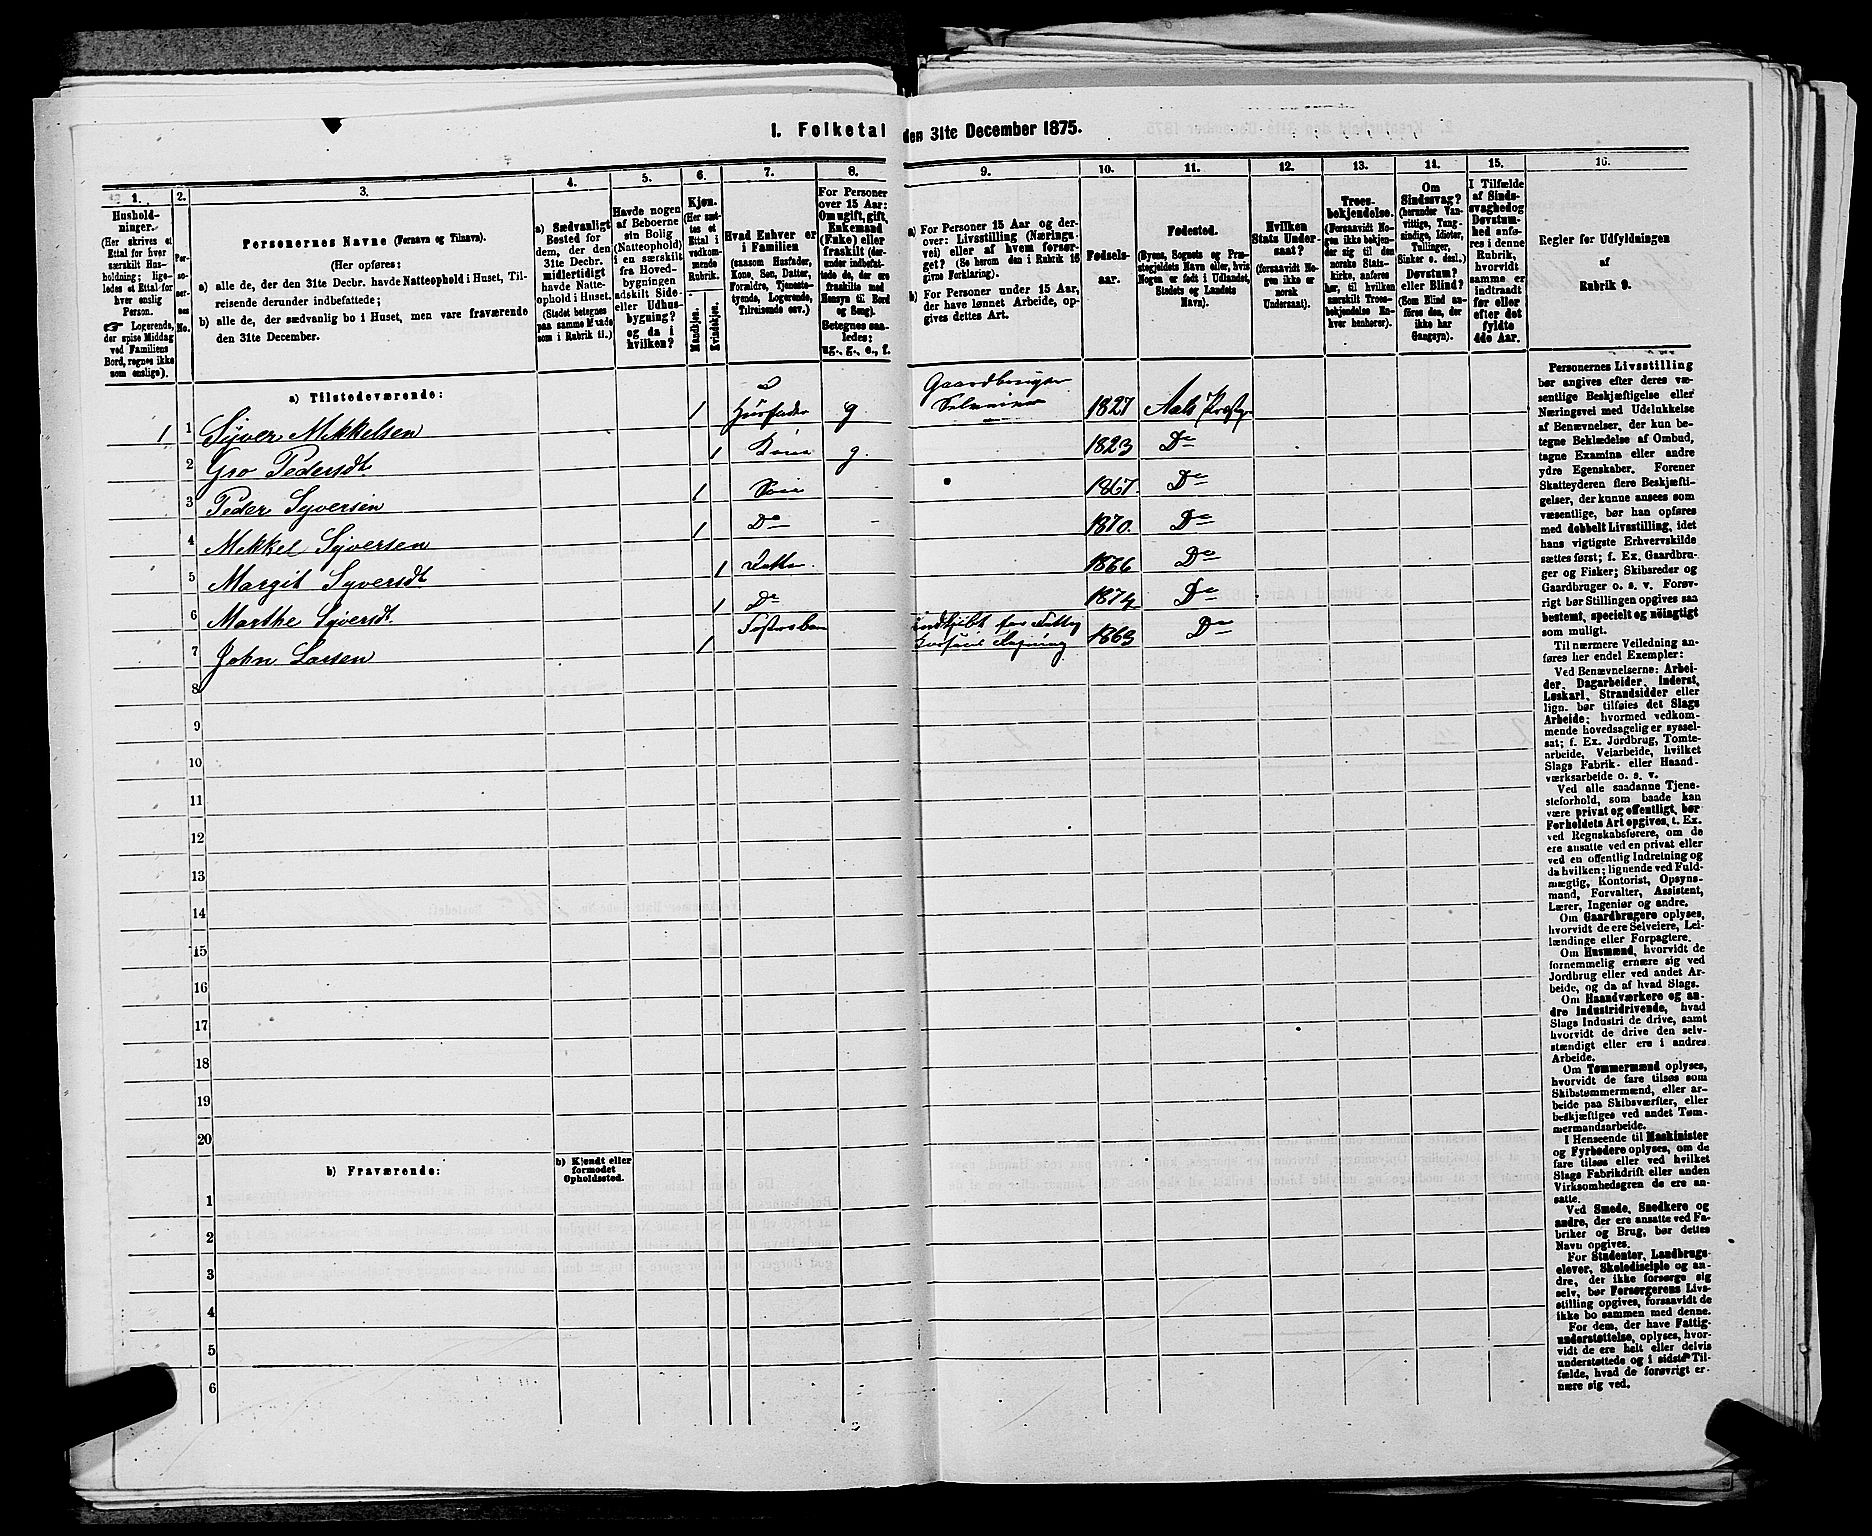 1. Folketal den 31te December 1875.
1.
Hushold-
ninger.
(Her skrives et
Ettal for hver
særskilt Hus-
holdning; lige-
ledes et Ettal for
hver enslig
Person.
☞ Logerende,
der spise Middag
ved Familiens
Bord, regnes ikke
som enslige).
2.
Per-
so-
ner-
nes
No.
3.
Personernes Navne (Fornavn og Tilnavn).
(Her opføres:
a) alle de, der den 31te Decbr. havde Natteophold i Huset, Til-
reisende derunder indbefattede;
b) alle de, der sædvanlig bo i Huset, men vare fraværende
den 31te December.
4.
a) Sædvanligt
Bosted for
dem, der den
31te Decbr.
midlertidigt
havde Natte-
ophold i Huset.
(Stedet betegnes
paa samme Maade
som i Rubrik 11.)
5.
Havde nogen
af Beboerne
sin Bolig
(Natteophold)
i en særskilt
fra Hoved-
bygningen
adskilt Side-
eller Udhus-
bygning?
og da i
hvilken?
6.
Kjøn.
(Her sæt-
tes et
Ettal i
vedkom-
mende
Rubrik.
Mandkjøn.
Kvindekjøn.
7.
Hvad Enhver er
i Familien
(saasom Husfader,
Kone, Søn, Datter,
Forældre, Tjeneste-
tyende, Logerende,
Tilreisende osv.)
8.
For Personer
over 15 Aar:
Om ugift, gift,
Enkemand
(Enke) eller
fraskilt (der-
under indbefat-
tede de, der ere
fraskilte med
Hensyn til Bord
og Seng).
Betegnes saa-
ledes:
ug., g., e., f.
9.
a) For Personer 15 Aar og der-
over: Livsstilling (Nærings-
vei) eller af hvem forsør-
get? (Se herom den i Rubrik 16
givne Forklaring).
b) For Personer under 15 Aar,
der have lønnet Arbeide, op-
gives dettes Art.
10.
Fødsels-
aar.
11.
Fødested.
(Byens, Sognets og Præ-
stegjeldets Navn eller, hvis
Nogen er født i Udlandet,
Stedets og Landets
Navn).
12.
Hvilken
Stats Under-
saat?
(forsaavidt No-
gen ikke er
norsk
Undersaat).
13.
Troes-
bekjendelse.
(Forsaavidt No-
gen ikke bekjen-
der sig til den
norske Stats-
kirke, anføres
her, til hvilken
særskilt Troes-
bekjendelse En-
hver henhører).
14.
Om
Sindssvag?
(herunder Van-
vittige, Tung-
sindige, Idioter,
Tullinger,
Sinker o. desl.)
Døvstum?
eller Blind?
(Som Blind an-
føres den, der
ikke har
Gangsyn).
15.
I Tilfælde
af Sinds-
svaghed og
Døvstum-
hed anfø-
res i denne
Rubrik,
hvorvidt
samme er
indtraadt
før eller
efter det
fyldte
4de Aar.
16.
Regler for Udfyldningen
af
Rubrik 9.
a) Tilstedeværende:
1 1 Syver Mikkelsen 1 Husfader g Gaardbruger Selveier 1827 Aals Prestg.
2 Gro Pedersdt 1 Kone g. 1823 Do
3 Peder Syversen 1 Søn 1867. Do
4 Mikkel Syversen 1 Do 1870. Do
5 Margit Syversdt 1 Datter. 1866 Do
6 Marthe Syversdt. 1 Do 1874 Do
7 John Larsen 1 for Fattig 1863 Do
8
9
10
11
12
13
14
15
16
17
18
19
20
b) Fraværende:
b) Kjendt eller
formodet
Opholdssted.
1
2
3
4
5
6
Personernes Livsstilling
bør angives efter deres væ-
sentlige Beskjæftigelse eller
Næringsvei med Udelukkelse
af Benævnelser, der kun be-
tegne Beklædelse af Ombud,
tagne Examina eller andre
ydre Egenskaber. Forener
Skatteyderen flere Beskjæfti-
gelser, der kunne ansees som
væsentlige, bør han opføres
med dobbelt Livsstilling, idet
hans vigtigste Erhvervskilde
sættes først; f. Ex. Gaardbru-
ger og Fisker; Skibsreder og
Gaardbruger o. s. v. Forøv-
rigt bør Stillingen opgives saa
bestemt, specielt og nöiagtigt
som muligt.
Til nærmere Veiledning an-
føres her endel Exempler:
Ved Benævnelserne: Arbei-
der, Dagarbeider, Inderst,
Løskarl, Strandsidder eller
lign. bør tilføies det Slags
Arbeide; hvormed vedkom-
mende hovedsagelig er syssel-
sat; f. Ex. Jordbrug, Tomte-
arbeide, Veiarbeide, hvilket
Slags Fabrik- eller Haand-
værksarbeide o. s. v.
Ved alle saadanne Tjene-
steforhold, som baade kan
være privat og offentligt, bør
Forholdets Art opgives, t. Ex.
ved Regnskabsførere, om de
ere ansatte ved en privat eller
ved en offentlig Indretning og
da hvilken; lignende ved Fuld-
mægtig, Kontorist, Opsyns-
mand, Forvalter, Assistent,
Lærer, Ingeniør og andre.
Om Gaardbrugere oplyses,
hvorvidt de ere Selveiere, Lei-
lændinge eller Forpagtere.
Om Husmænd, hvorvidt de
fornemmelig ernære sig ved
Jordbrug eller ved andet Ar-
beide, og da af hvad Slags.
Om Haandværkere og an-
dre Industridrivende, hvad
Slags Industri de drive, samt
hvorvidt de drive den selv-
stændigt eller ere i andres
Arbeide.
Om Tømmermænd oplyses,
hvorvidt de fare tilsøs som
Skibstømmermænd, eller ar-
beide paa Skibsværfter, eller
beskjæftiges ved andet Tøm-
mermandsarbeide.
I Henseende til Maskinister
og Fyrbødere oplyses, om de
fare tilsøs eller ved hvilket
Slags Fabrikdrift eller anden
Virksomhedsgren de ere an-
satte.
Ved Smede, Snedkere og
andre, der ere ansatte ved Fa-
briker og Brug, bør dettes
Navn opgives.
For Studenter, Landbrugs-
elever, Skoledisciple og an-
dre, der ikke forsørge sig
selv, bør Forsørgerens Livs-
stilling opgives, forsaavidt de
ikke bo sammen med denne.
For dem, der have Fattig-
understøttelse, oplyses, hvor-
vidt de ere helt eller delvis
understøttede og i sidste Til-
fælde, hvad de forøvrigt er-
nære sig ved.